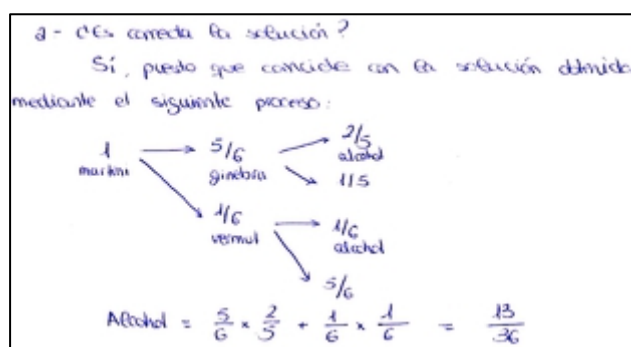 a - ¿Es correcta la solución?
Sí, puesto que coincide con la solución obtenida
mediante el siguiente proceso:
1 martini → 5/6 ginebra → 2/5 alcohol
→ 1/5
→ 1/6 vermut → 1/6 alcohol
→ 5/6
Alcohol = 5/6 × 2/5 + 1/6 × 1/6 = 13/36